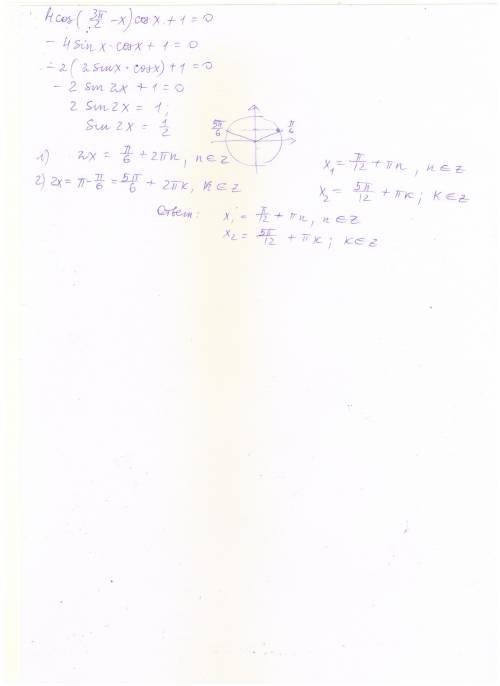 4cos(3π/2 - x)cos x + 1 = 0
- 4 sin x · cos x + 1 = 0
- 2(2 sin x · cos x) + 1 = 0
- 2 sin 2x + 1 = 0
2 sin 2x = 1;
sin 2x = 1/2
5π/6 π/6
1) 2x = π/6 + 2πn, n ∈ Z
x₁ = π/12 + πn, n ∈ Z
2) 2x = π - π/6 = 5π/6 + 2πk, k ∈ Z
x₂ = 5π/12 + πk; k ∈ Z
Ответ: x₁ = π/12 + πn, n ∈ Z
x₂ = 5π/12 + πk; k ∈ Z